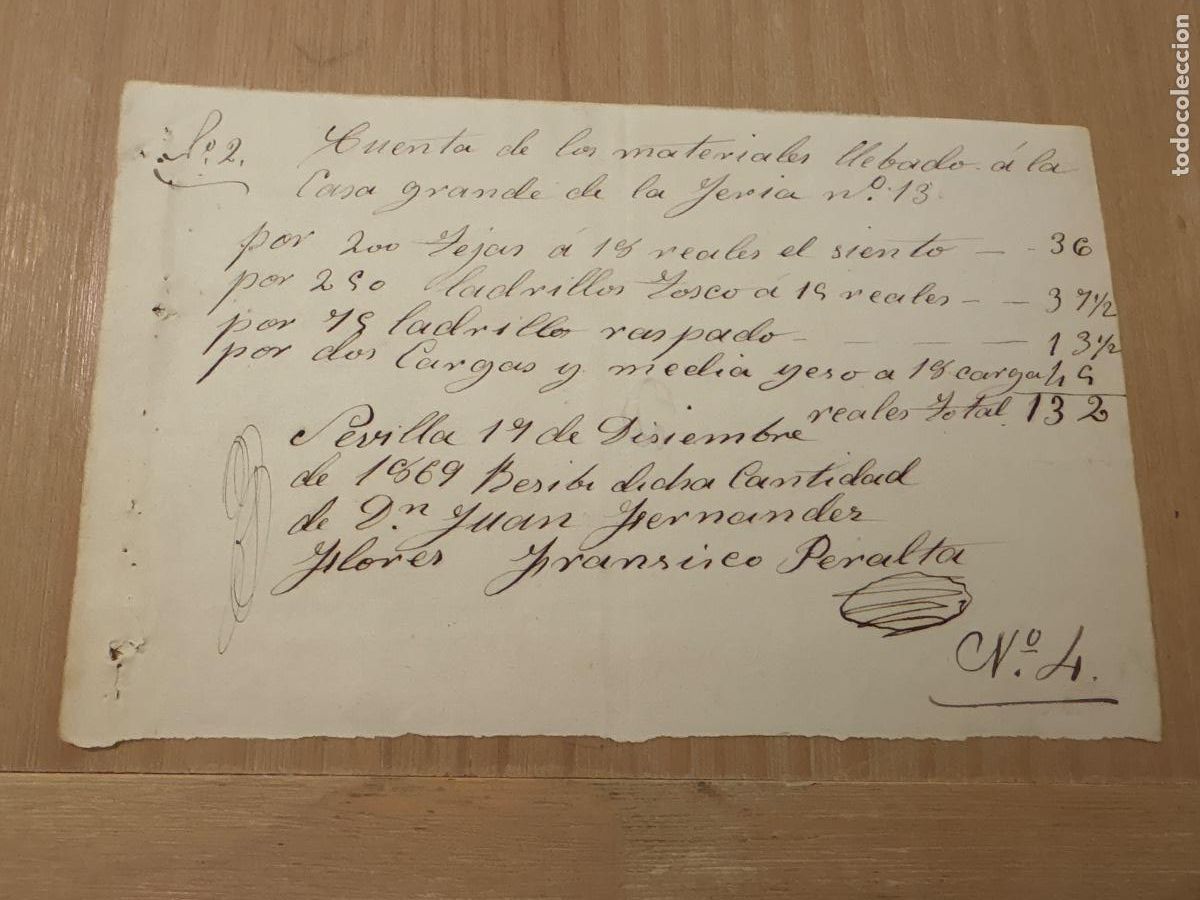 Nº. 2.
Cuenta de los materiales llebado á la
Casa grande de la Feria nº. 13.
por 200 Tejas á 18 reales el siento — - 36
por 250 ladrillos Tosco á 15 reales - — 37 1/2
por 75 ladrillo raspado - — — — 13 1/2
por dos Cargas y media yeso a 18 carga 45
reales Total 132
Sevilla 17 de Disiembre
de 1869 Resibi dicha Cantidad
de Dn Juan Fernandez
Flores Fransisco Peralta
Nº. 4.
todocoleccion